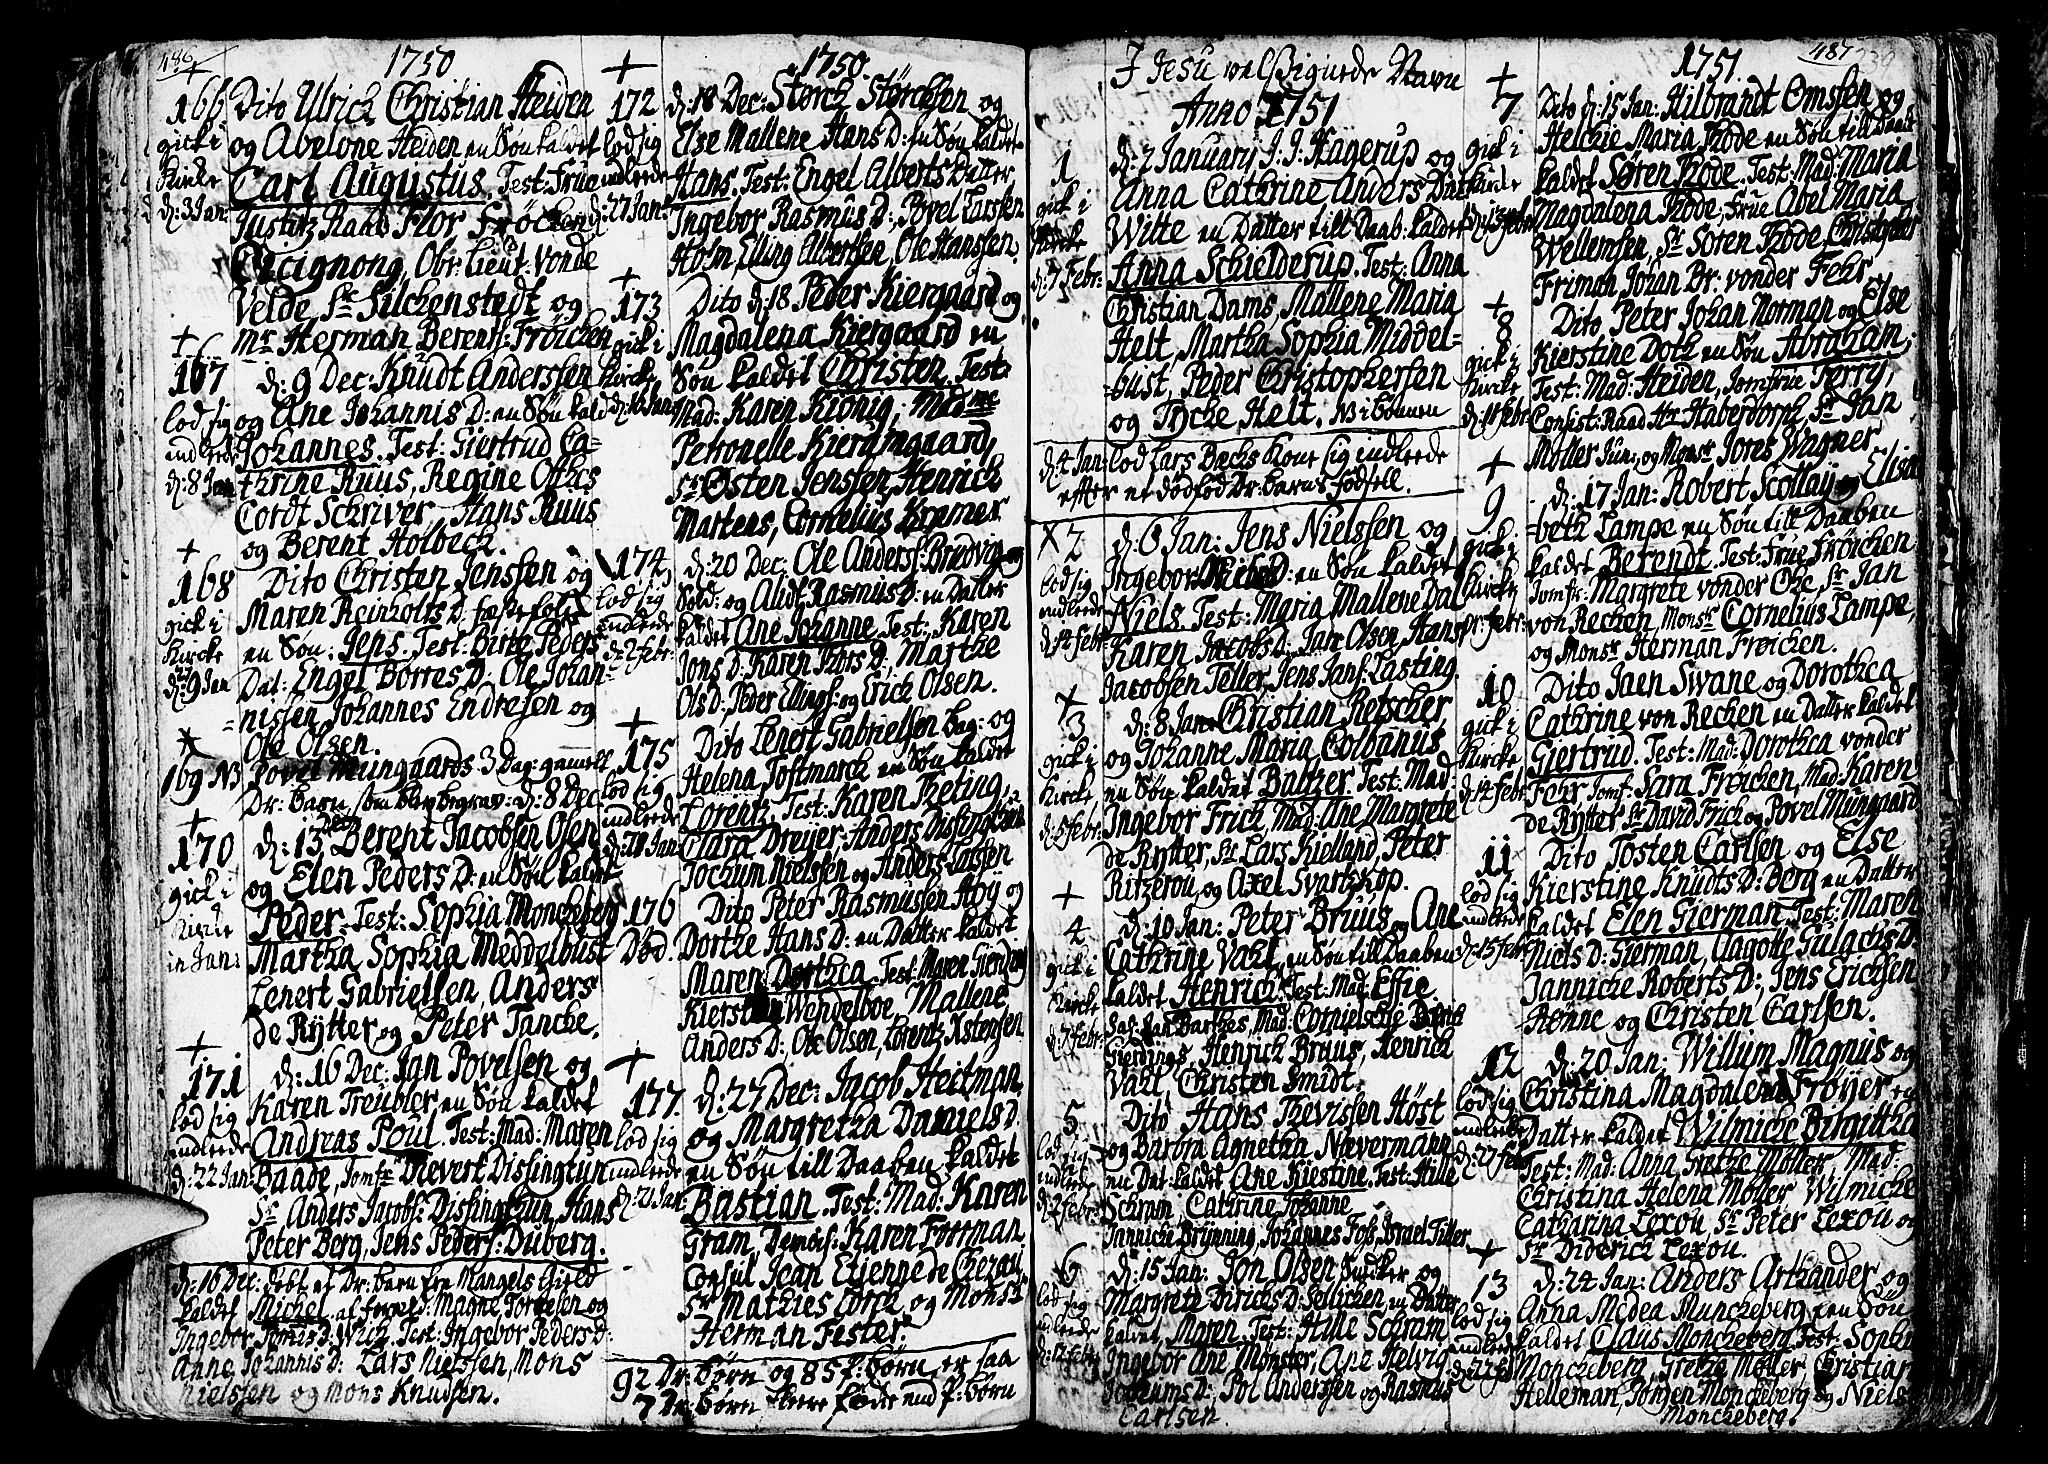 486
1750
+
166
gick i
Kircke
d: 3 Jan:
Dito Ulrich Christian Heiden
og Abelone Heiden en Søn kaldet
Carl Augustus. Test: Frue
Justitz Raad Flor Frøcken
Obr: Lieut: vonde
Velde, Sr Silckenstedt og
mr Herman Berent: Frøichen
+
167
lod sig
indlede
d: 8 Jan
d: 9 Dec: Knudt Anderssen
og Ane Johannis D: en Søn kald
Johannes. Test: Giertrud Ca-
thrine Ruus, Regine Othes
Cordt Schriver, Hans Ruus
og Berent Holbeck.
+
168
gick i
Kircke
d: 9 Jan
Dito Christen Jenssen og
Maren Reinholts D: fæstefolk
en Søn: Jens. Test: Birte Peders
Dat: Engel Borres D: Ole Johan-
nissen, Johannes Endresen og
Ole Olsen.
169 NB
Povel Mungaards 3 Dag: gamelt
Dr: barn, som blev begrav: d: 8 Dec
+
170
gick i
Kircke
in Jan:
d: 13 Dec: Berent Jacobsen Olsen
og Elen Peders D: en Søn kaldet
Peder. Test: Sophia Monckeberg
Martha Sophia Meddelbust
Lenert Gabrielsen, Anders
de Rytter og Peter Tancke.
+
171
lod sig
indlede
d: 22 Jan
d: 16 Dec: Jan Povelsen og
Karen Treubler, en Søn kaldet
Andreas Poul. Test: Mad: Maren
Baade, Jomfr: Sievert Dissingtun
Sr. Anders Jacobs: Dissingthun, Hans
Peter Berg, Jens Peders: Duberg.
d: 16 Dec: døbt et Dr: barn fra Mangels Gield
kaldet Michel, af forreld: Magne Torkelsen og
Ingebor Tomis D: Wich. Test: Ingebor Peders D:
Anne Johannis D: Lars Nielssen, Mons
Nielssen og Mons Knudsen.
1750.
+
172
lod sig
indlede
d: 27 Jan:
d: 18 Dec: Størck Størcksen og
Else Mallene Hans D: en Søn kaldet
Hans. Test: Engel Alberts Datter
Ingebor Rasmus D: Povel Larsen
Holm, Elling Albertsen, Ole Hanssen.
+
173
gick i
Kircke
d: 10 Jan
Dito d: 18 Peder Kiergaard og
Magdalena Kiergaard en
Søn kaldet Christen. Test:
Mad: Karen Kionig, Madme
Petronelle Kierumgaard,
Sr Østen Jenssen, Henrich
Martens, Cornelius Kramer
174
lod sig
indlede
d: 2 febr:
d: 20 Dec: Ole Anders: Bredvig
Sold: og Alidt Rasmus D: en Datter
kaldet Ane Johanne. Test: Karen
Jons D: Karen Thors D: Marthe
Ols D: Peder Ellings: og Erich Olsen.
+
175
lod sig
indlede
d: 28 Jan:
Dito Lenert Gabrielsen bag: og
Helena Toftmarck en Søn kaldet
Lorentz. Test: Karen Theting,
Clara Dreyer, Anders Dissingthun
Jochum Nielssen og Anders Larssen
176
Død.
Dito Peter Rasmussen Høy og
Dorthe Hans D: en Datter kaldet
Maren Dorthea. Test: Maren Gierding
Kiersten Wendelboe, Mallene
Anders D: Ole Olsen, Lorentz Ystensen
+
177.
lod sig
indlede
d: 21 Jan:
d: 27 Dec: Jacob Heitman
og Margretha Daniels D.
en Søn till Daaben kaldet
Bastian. Test: Mad: Karen
Gram, Demois: Karen Forman
Consul Jean Etienne de Chezaúx
Sr Mathies Lorck og Monsr
Herman Fester.
92 Dr: børn og 85 P: børn er saa
7 Dr: børn flere fødte end P: børn
I Jesu velsignede Navn
Anno 1751
1
gick i
Kircke
d: 7 Febr:
d: 2 January J. J: Hagerup og
Anna Cathrine Anders Dat
Witte en Datter till Daab: kaldet
Anna Schielderup. Test: Anna
Christian Dams, Mallene Maria
Helt, Martha Sophia Middel-
bust, Peder Christophersen
og Tycke Helt.
d: 4 Jan: lod Lars Bechs kone sig indlede
effter et dødfød Dr: barns fødsell.
X 2
lod sig
indlede
d: 14 Febr:
d: 6 Jan: Jens Nielssen og
Ingebor D: en Søn kaldet
Niels. Test: Maria Mallene Dal
Karen Jacobs D: Jane Olsen, Hans
Jacobsen Teller, Jens Jans: Lasting.
+
3
gick i
Kircke
d: 5 febr:
d: 8 Jan: Christian Retscher
og Johanne Maria Colbanus
en Søn kaldet Baltzer. Test: Mad
Ingebor Frich, Mad: Ane Margrete
de Rytter, Sr: Lars Kielland, Peter
Ritzerou og Axel Svartzkop.
+
4
gick i
Kircke
d: 7 febr:
d: 10 Jan: Peter Bruus og Ane
Cathrine Vahl, en Søn till Daaben
kaldet Henrich. Test: Mad: Effie
Sal: Jan Barthes, Mad: Cornielsche
Gierdings, Henrich Bruus, Henrich
Vahl Christen Smidt.
5
lod sig
indlede
d: 2 febr
Dito Hans Thevissen Høst
og Barbra Agnetha Nævermann
en Dat: kaldet Ane Kiestine. Test: Hille
Schram Cathrine Johanne
Jannicke Brynning, Johannes Fos, Israel Tiller
6
lod sig
indlede
d: 12 febr
d: 15 Jan: Jon Olsen Snidker og
Margrete Dirichs D: Sellichen en Datter
kaldet Maren. Test: Hille Schram
Ingebor Ane Mønster, Ane Helvig
Jochums D: Pol Anderssen og Rasmus
Carlsen.
487
239
1751.
+
7
gick i
Kircke
d: 13 febr
Dito d: 15 Jan: Hilbrandt Omsen og
Helchie Maria Thode en Søn till Daab
kaldet Søren Thode. Test: Mad: Maria
Magdalena Thode, Frue Abel Maria
Wellemsen, Sr Søren Thode, Christopher
Friman, Johan Br: vonder Fehr
+
8
gick i
Kircke
d: 11 febr
Dito Peter Johan Norman og Else
Kierstine Doth en Søn Abraham,
Test: Mad: Heiden, Jomfrue Ferry,
Consist: Raad Hr Haberdorph, Sr Jan
Møller Jun: og Monsr Jores Wagner
+
9
gick i
Kircke
d: febr:
d: 17 Jan: Robert Scollay og Elisa
beth Lampe en Søn till Daaben
kaldet Berendt. Test: Frue Frøichen
Jomfr: Margrete vonder Ohe, Sr Jan
von Rechen, Monsr Cornelius Lampe,
og Monsr Herman Frøichen.
10
gick i
Kircke
d: 14 febr
Dito Jaen Swane og Dorothea
Cathrine von Rechen en Datter kaldet
Giertrud. Test: Mad: Dorothea vonder
Fehr Jomf: Sara Frøichen, Mad: Karen
de Rytter Sr David Frich og Povel Mungaard
11
lod sig
indlede
d: 15 febr
Dito Tosten Carlsen og Else
Kierstine Knudts D: Berg en Datter
kaldet Elen Gierman. Test: Maren
Niels D: Gierman, Aagotte Gulacks D.
Jannicke Roberts D:, Jens Erichsen
Hønne og Christen Carlsen.
12
lod sig
indlede
d: 27 feb
d: 20 Jan: Willum Magnus og
Christina Magdalena Frøyer en
Datter kaldet Wilmicke Birgitha
Test: Mad: Anna Grethe Møller, Mad:
Christina Helena Møller Wilmicke
Catharina Lexou, Sr Peter Lexou og
Sr Diderich Lexou.
+
13
lod sig
indlede
d: 22 feb
d: 24 Jan: Anders Arthander og
Anna Medea Munckeberg, en Søn
kaldet Claus Monckeberg. Test: Sophi
Monckeberg, Grethe Møller, Christian
Helleman, Jørgen Monckeberg og Niels
Monckeberg.